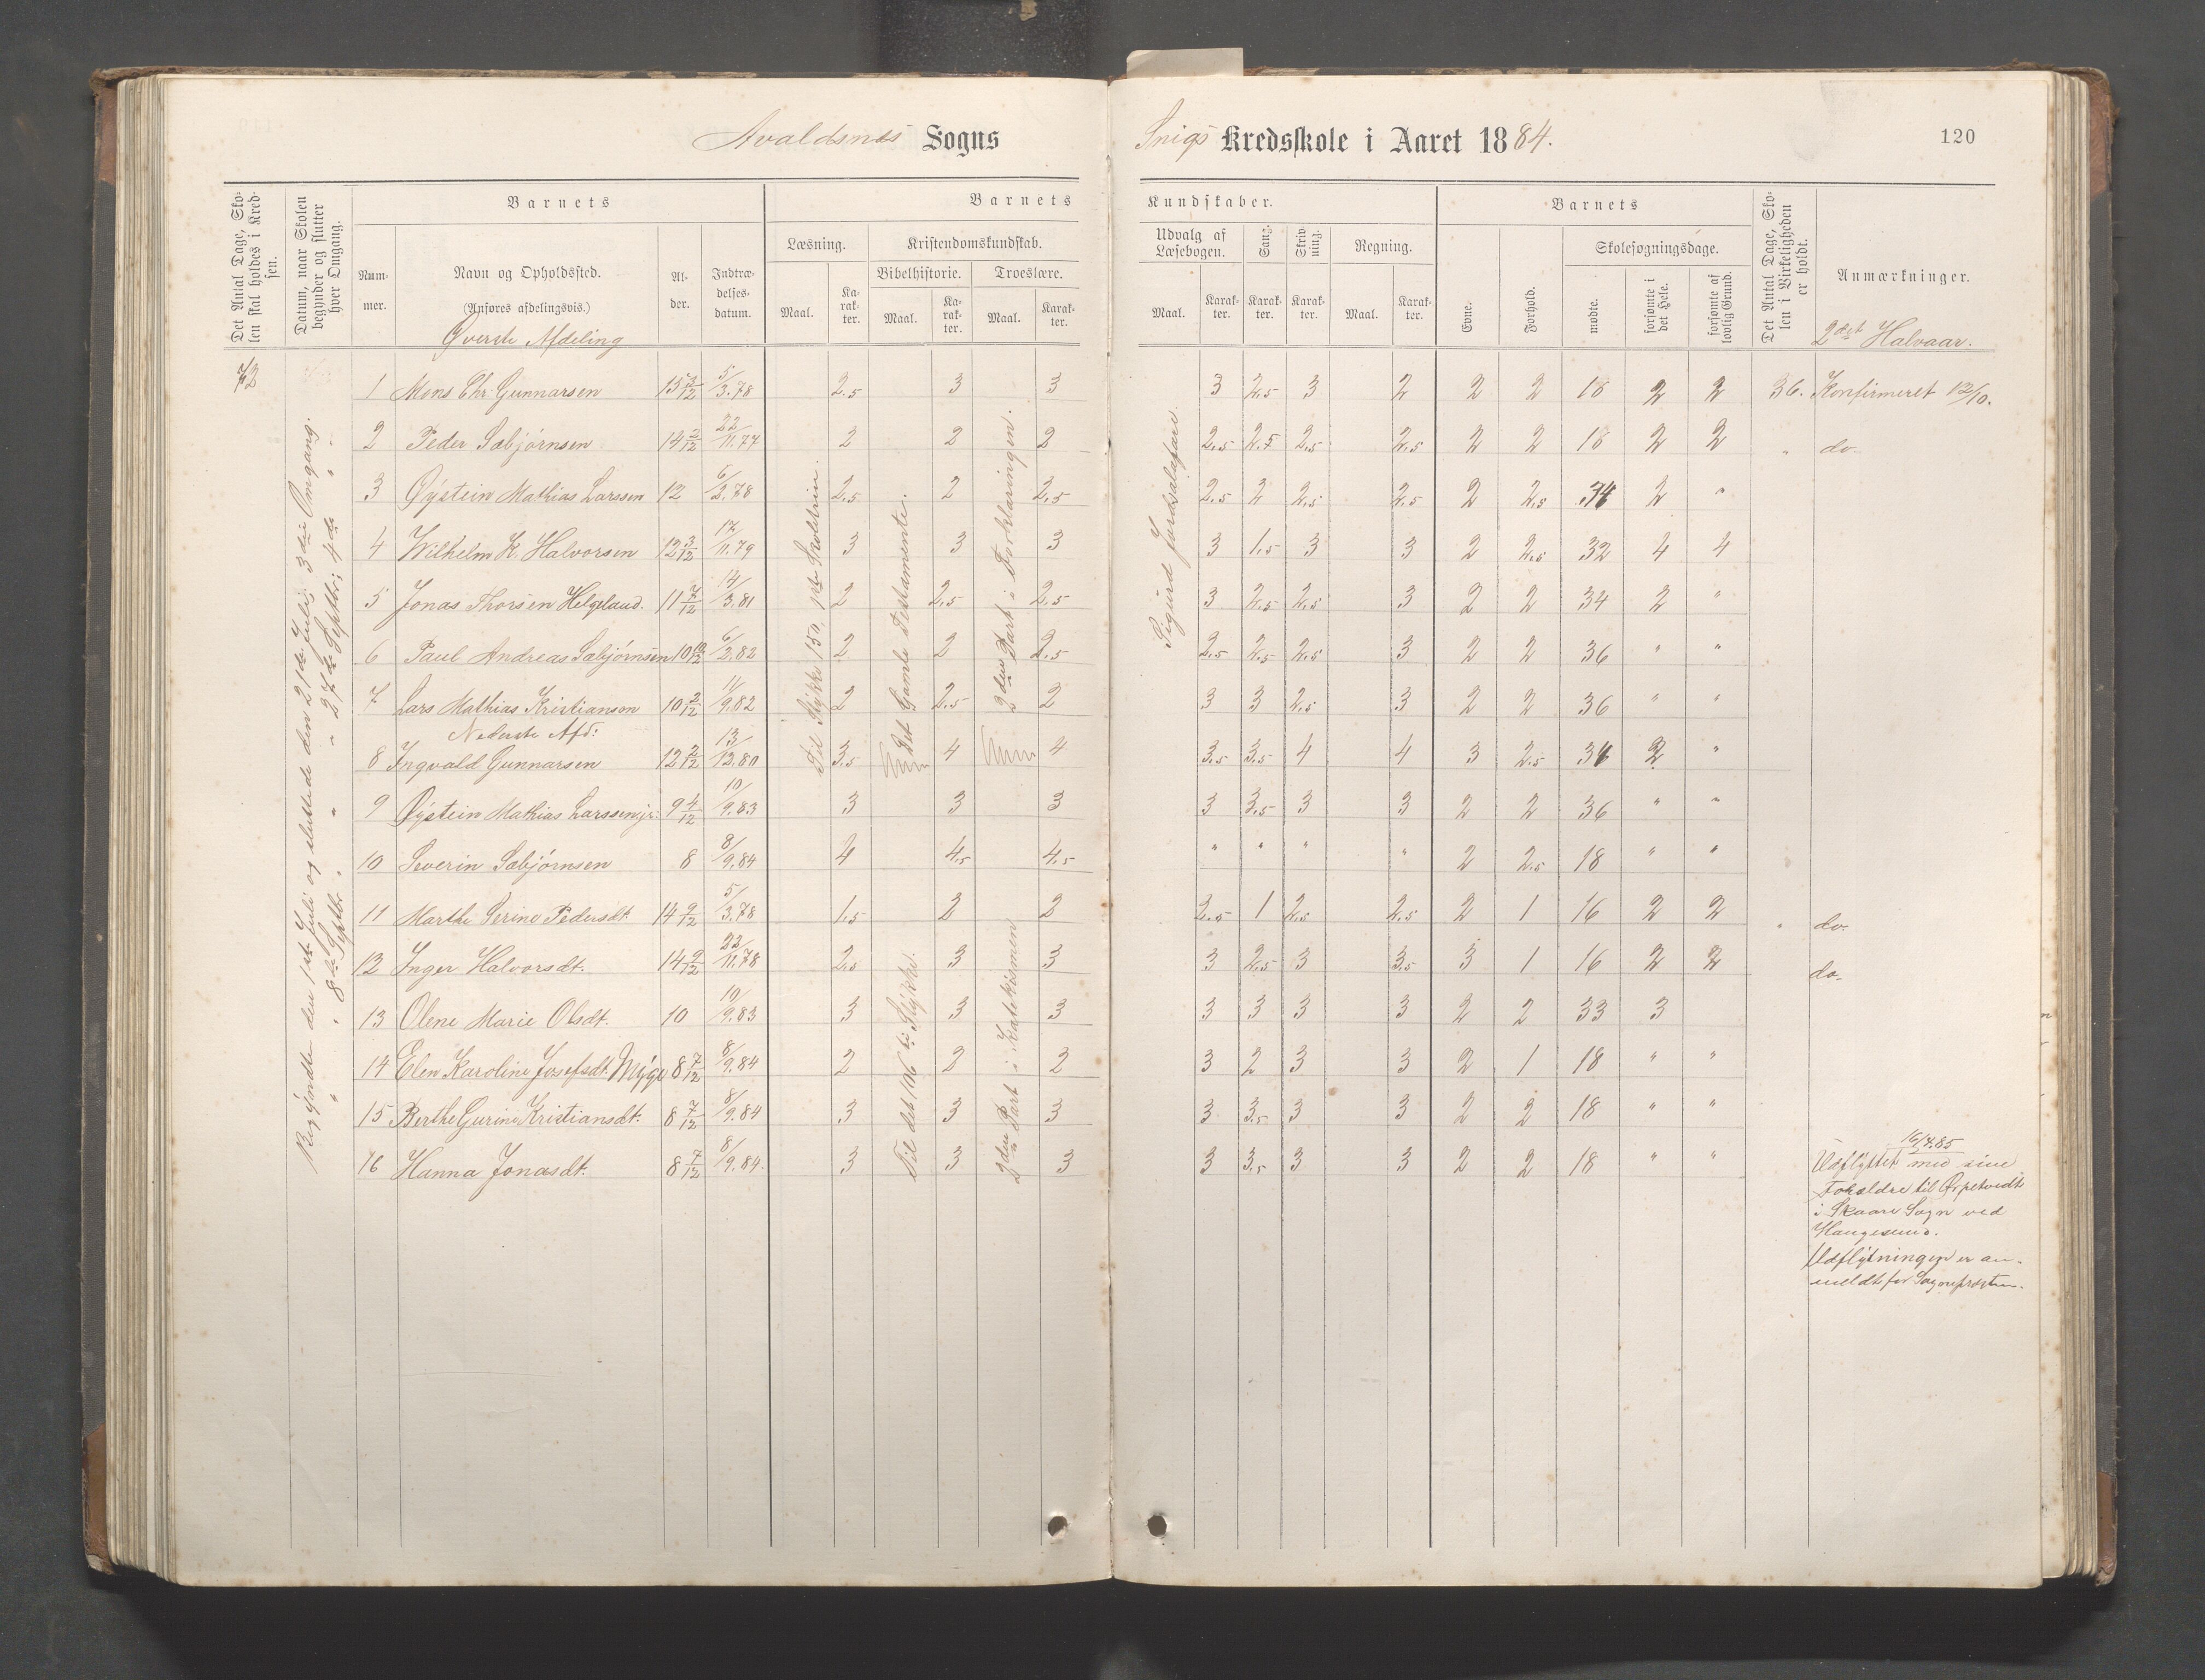 Avaldsnes Sogns
Snigs Kredsskole i Aaret 1884.
120
Det Antal Dage, Skolen skal holdes i Kredsen.
Datum, naar Skolen begynder og slutter hver Omgang.
Barnets
Nummer.
Navn og Opholdssted.
(Anføres afdelingsvis.)
Alder.
Indtrædelsesdatum.
Barnets
Læsning.
Maal.
Karakter.
Kristendomskundskab.
Bibelhistorie.
Maal.
Karakter.
Troeslære.
Maal.
Karakter.
Kundskaber.
Udvalg af Læsebogen.
Maal.
Karakter.
Sang.
Karakter.
Skrivning.
Karakter.
Regning.
Maal.
Karakter.
Barnets
Evne.
Forhold.
Skolesøgningsdage.
mødte.
forsømte i det Hele.
forsømte af lovlig Grund.
Det Antal Dage, Skolen i Virkeligheden er holdt.
Anmærkninger.
2det Halvaar.
Øverste Afdeling
72
Begyndte den 1ste Juli og sluttede den 21de Juli; 3die Omgang.
" " 8de Septbr. " " 27de Septbr; 4de " "
Til Stykke 150, 1ste Skoletrin.
Det Gamle Testamente.
2den Part i Forklaringen.
Sigurd Jorsalafare
1 Mons Chr. Gunnarsen 15 7/12 5/3.78 2.5 3 3 3 2.5 3 2 2 2 18 2 2 36. Konfirmeret 12/10.
2 Peder Sæbjørnsen 14 3/12 22/11.77 2 2 2 2.5 2.5 2.5 2.5 2 2 18 2 2 " do.
3 Øystein Mathias Larssen 12 6/2.78 2.5 2 2.5 2.5 2 2.5 2.5 2 2.5 34 2 "
4 Wilhelm K. Halvorsen 12 3/12 17/11.79 3 3 3 3 1.5 3 3 2 2.5 32 4 4
5 Jonas Thorsen Helgeland. 11 7/12 14/3.81 2 2.5 2.5 3 2.5 2.5 3 2 2 34 2 "
6 Paul Andreas Sæbjørnsen 10 10/12 6/2.82 2 2 2.5 2.5 2.5 2.5 3 2 2 36 " "
7 Lars Mathias Kristiansen 10 2/12 11/9.82 2 2.5 2 3 3 2.5 3 2 2 36 " "
Nederste Afd:
8 Ingvald Gunnarsen 12 2/12 13/12.80 3.5 4 4 3.5 3.5 4 4 3 2.5 34 2 "
9 Øystein Mathias Larssen jr. 9 4/12 10/9.83 3 3 3 3 3.5 3 3 2 2 36 " "
10 Severin Sæbjørnsen 8 8/9.84 4 4.5 4.5 " " " " 2 2.5 18 " "
11 Marthe Serine Pedersdt. 14 9/12 5/3.78 1.5 2 2 2.5 1 2.5 2.5 2 1 16 2 2 " do.
12 Inger Halvorsdt. 14 9/12 22/11.78 2.5 3 3 3 2.5 3 3.5 3 1 16 2 2 do.
13 Olene Marie Olsdt. 10 10/9.83 3 3 3 3 3 3 3 2 2 33 3
14 Elen Karoline Josefsdt. Myge 8 7/12 8/9.84 2 2 2 3 2 3 3 2 1 18 " "
15 Berthe Gurine Kristiansdt. 8 7/12 8/9.84 3 3 3 3 3.5 3 3 2 2 18 " "
16 Hanna Jonasdt. 8 7/12 8/9.84. 3 3 3 3 3.5 3 3 2 2 18 " "
Til det 106te Stykke.
2den Part i Katekismen
16/4.85
Udflyttet med sine
Forældre til
i Skaare Sogn ved
Haugesund.
Udflytningen er an-
meldt for Sognepresten.